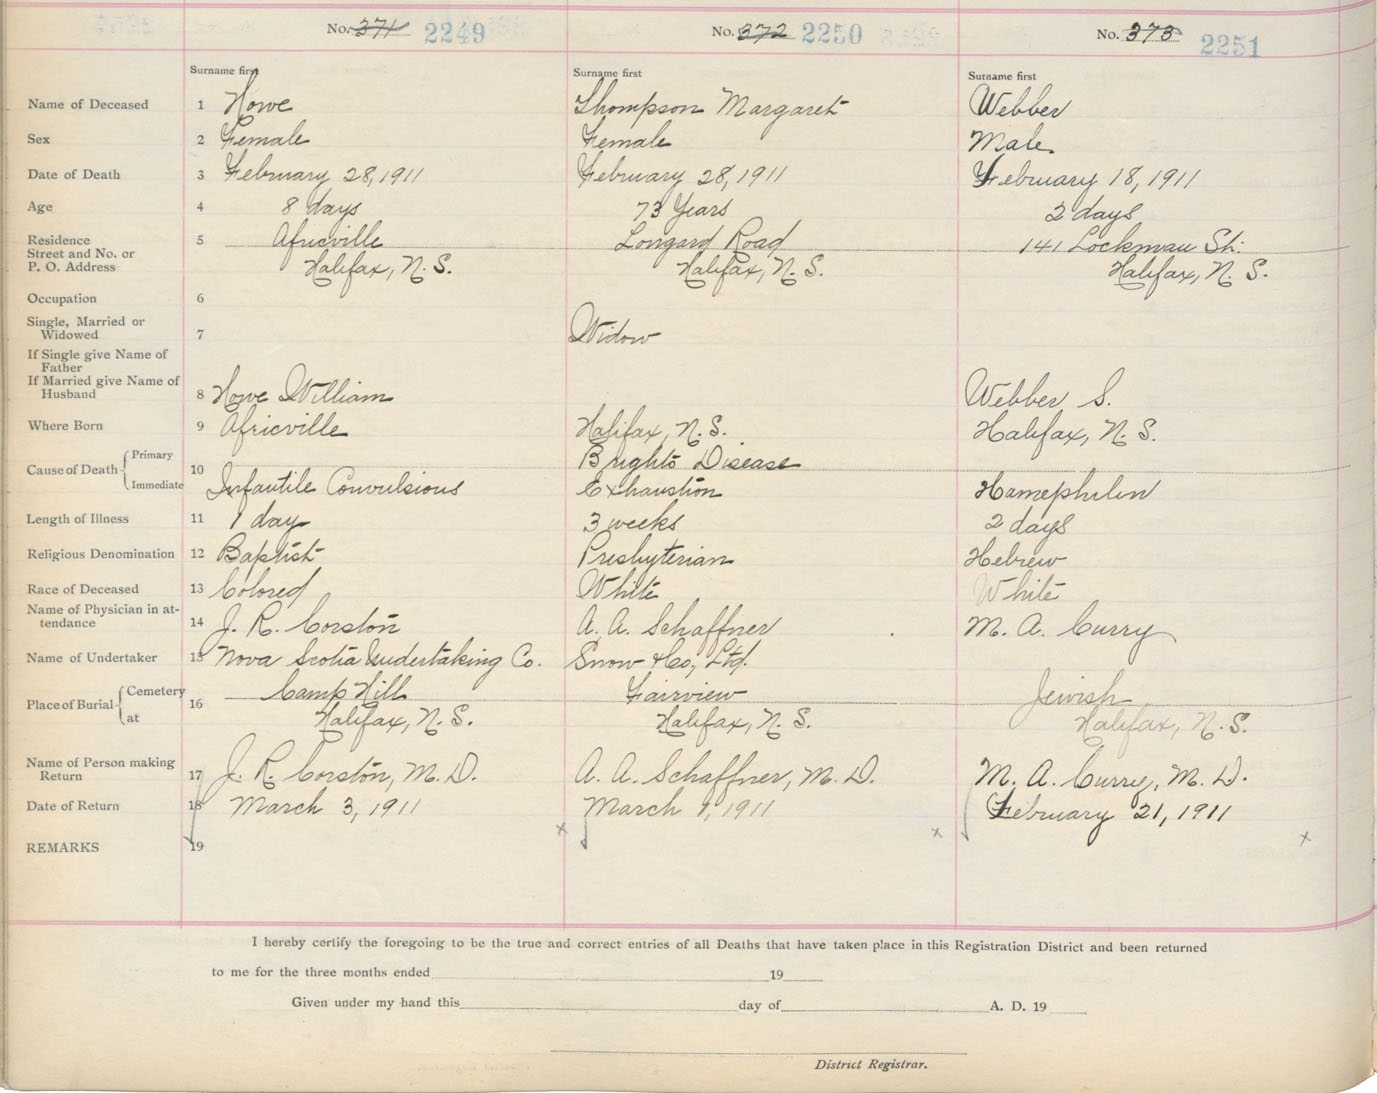 No. 371 2249 No. 372 2250 No. 373 2251
Surname first Surname first Surname first
Name of Deceased 1 Howe Thompson Margaret Webber
Sex 2 Female Female Male
Date of Death 3 February 28, 1911 February 28, 1911 February 18, 1911
Age 4 8 days 73 Years 2 days
Residence 5 Africville Longard Road 141 Lockman St.
Street and No. or
P. O. Address Halifax, N. S. Halifax, N. S. Halifax, N. S.
Occupation 6
Single, Married or
Widowed 7 Widow
If Single give Name of
Father
If Married give Name of
Husband 8 Howe William Webber S.
Where Born 9 Africville Halifax, N. S. Halifax, N. S.
Primary Brights Disease
Cause of Death 10
Immediate Infantile Convulsions Exhaustion Hamephilin
Length of Illness 11 1 day 3 weeks 2 days
Religious Denomination 12 Baptist Presbyterian Hebrew
Race of Deceased 13 Colored White White
Name of Physician in at-
tendance 14 J. R. Corston A. A. Schaffner M. A. Curry
Name of Undertaker 15 Nova Scotia Undertaking Co. Snow & Co, Ltd.
Cemetery Camp Hill Fairview Jewish
Place of Burial 16
at Halifax, N. S. Halifax, N. S. Halifax, N. S.
Name of Person making
Return 17 J. R. Corston, M. D. A. A. Schaffner, M. D. M. A. Curry, M. D.
Date of Return 18 March 3, 1911 March 1, 1911 February 21, 1911
x x x
REMARKS 19
I hereby certify the foregoing to be the true and correct entries of all Deaths that have taken place in this Registration District and been returned
to me for the three months ended 19
Given under my hand this day of A. D. 19
District Registrar.